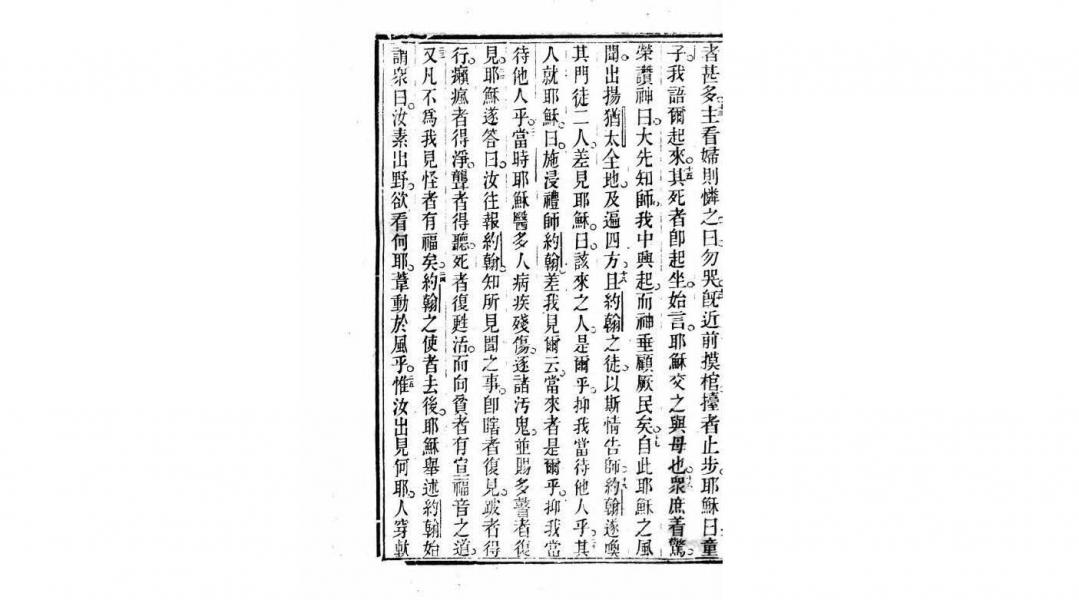 者甚多主看婦則憐之曰勿哭旣近前摸棺擡者止步耶穌曰童
子我語爾起來其死者卽起坐始言耶穌交之與母也衆庶着驚
榮讚神曰大先知師我中興起而神垂顧厥民矣自此耶穌之風
聞出揚猶太全地及遍四方且約翰之徒以斯情告師約翰遂喚
其門徒二人差見耶穌曰該來之人是爾乎抑我當待他人乎其
人就耶穌曰施浸禮師約翰差我見爾云當來者是爾乎抑我當
待他人乎當時耶穌醫多人病疾殘傷逐諸汚鬼並賜多瞽者復
見耶穌遂答曰汝往報約翰知所見聞之事卽瞎者復見跛者得
行癩瘋者得淨聾者得聽死者復甦活而向貧者有宣福音之道
又凡不爲我見怪者有福矣約翰之使者去後耶穌舉述約翰始
謂衆曰汝素出野欲看何耶葦動於風乎惟汝出見何耶人穿